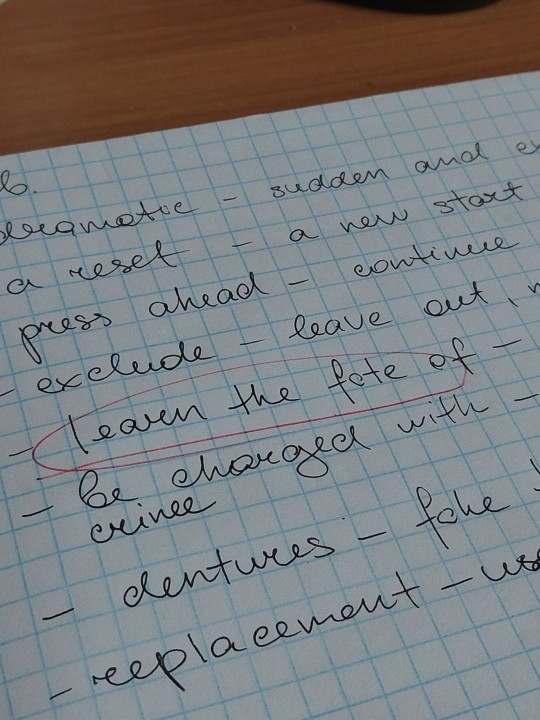 b.
dramatic - sudden and ex
a reset - a new start
press ahead - continue
- exclude - leave out,
- learn the fate of -
- be charged with -
crime
- dentures - fake
- replacement - us